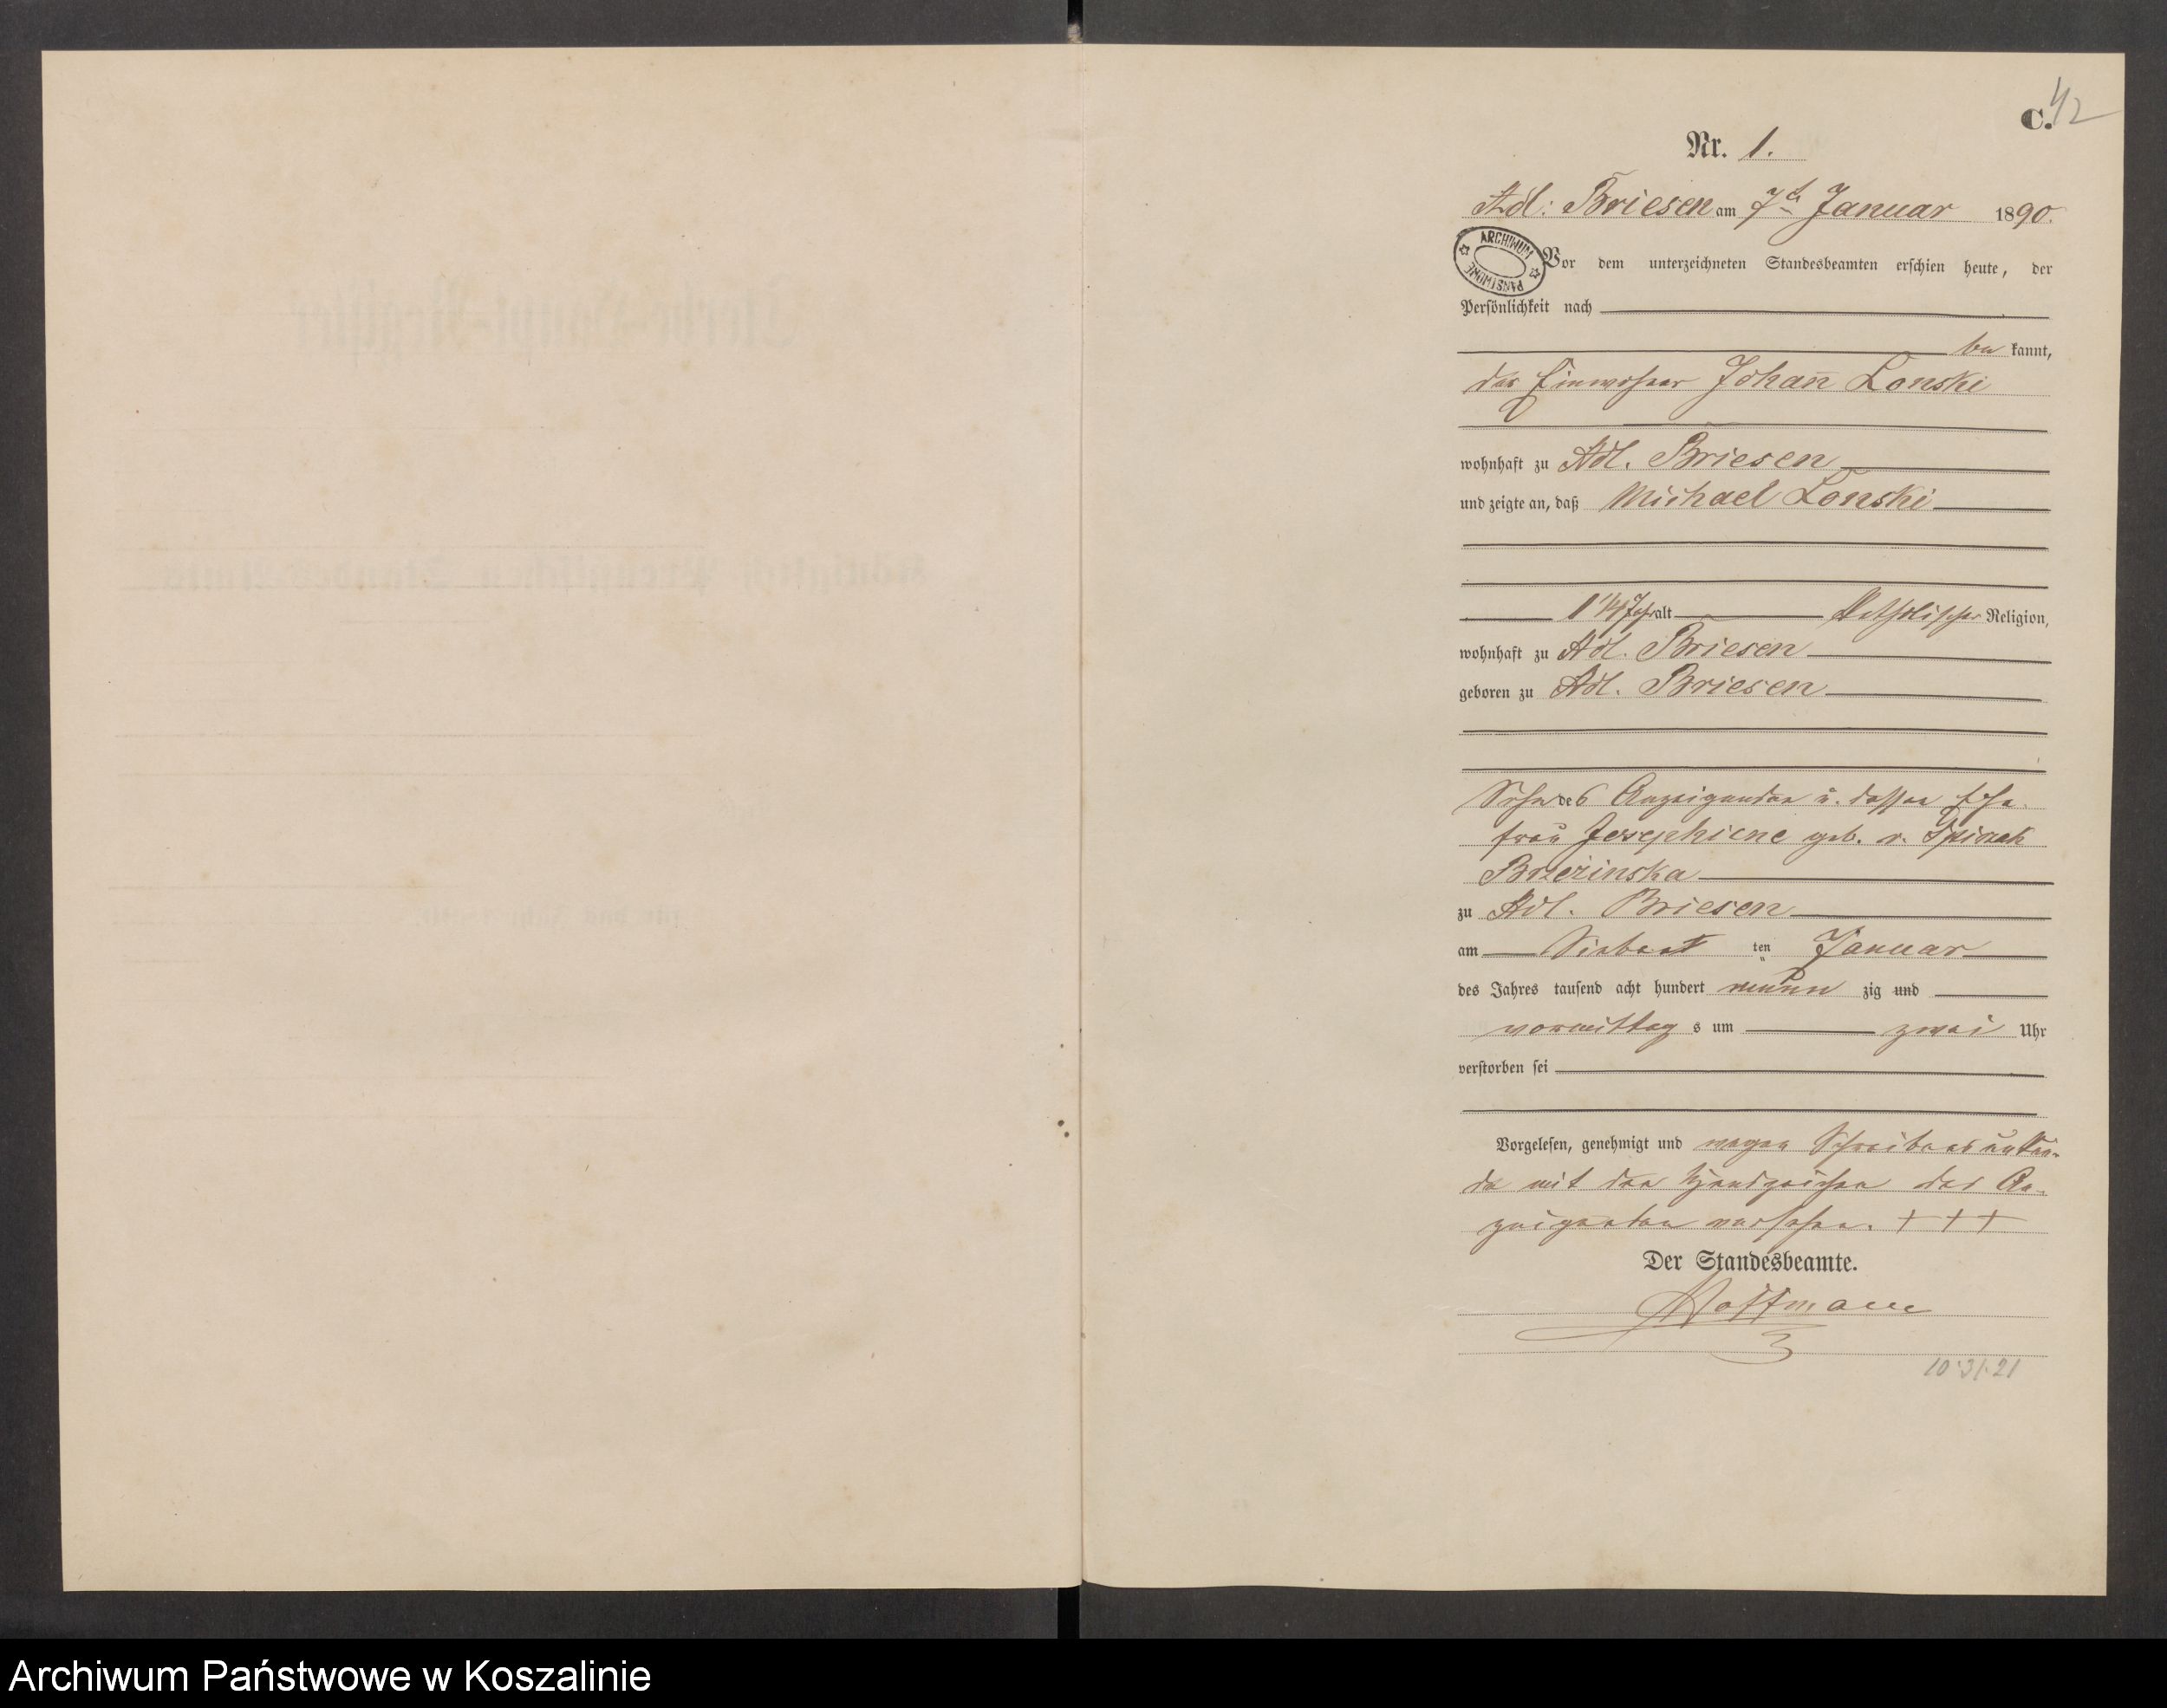 C.
42
Nr. 1.
Adl: Briesen am 7ten Januar 1890.
ARCHIWUM PAŃSTWOWE
Vor dem unterzeichneten Standesbeamten erschien heute, der
Persönlichkeit nach
be kannt,
der Einwohner Johann Lonski
wohnhaft zu Adl. Briesen
und zeigte an, daß Michael Lonski
1 1/4 Jahr alt Katholischer Religion,
wohnhaft zu Adl. Briesen
geboren zu Adl. Briesen
Sohn des Anzeigenden u. dessen Ehe-
frau Josephiene geb. v.
Brzezinska
zu Adl. Briesen
am Siebent ten Januar
des Jahres tausend acht hundert neun zig und
vormittag s um zwei Uhr
verstorben sei
Vorgelesen, genehmigt und wegen Schreibensunkun-
de mit den Handzeichen des An-
zeigenden versehen. + + +
Der Standesbeamte.
Hoffmann
10·31·21
Archiwum Państwowe w Koszalinie